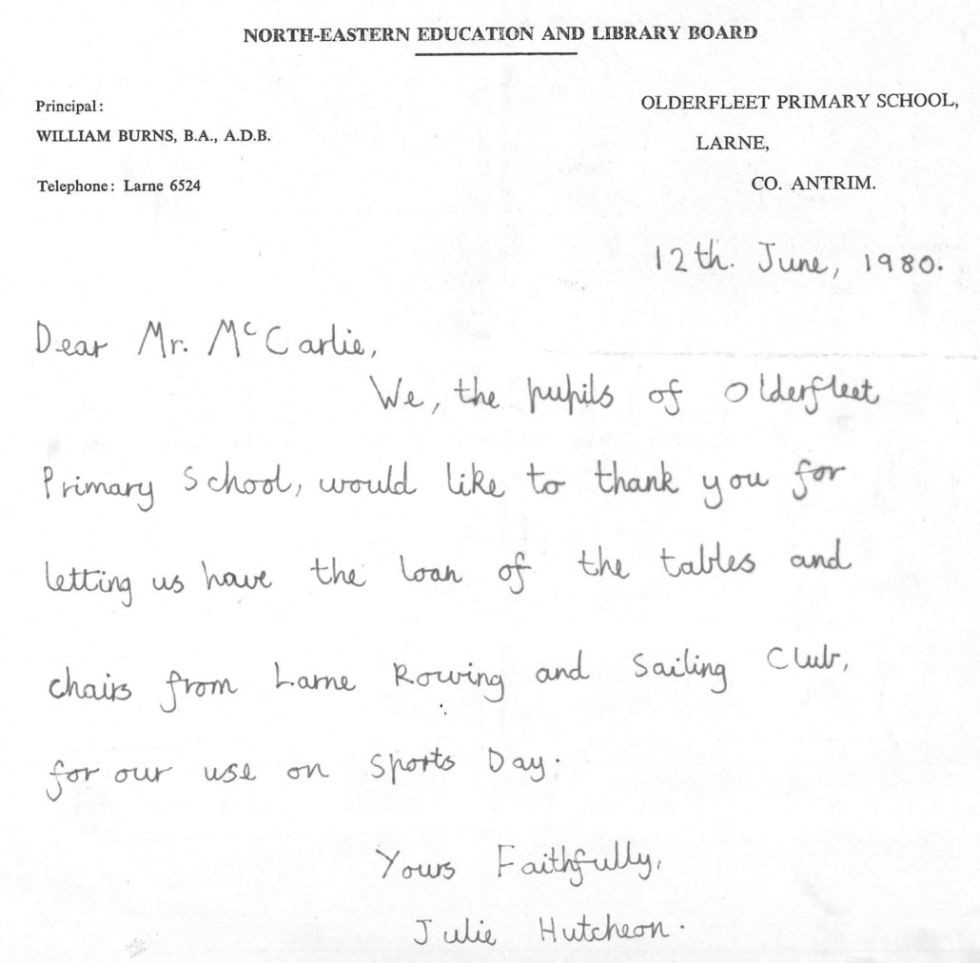 NORTH-EASTERN EDUCATION AND LIBRARY BOARD
Principal:
WILLIAM BURNS, B.A., A.D.B.
Telephone: Larne 6524
OLDERFLEET PRIMARY SCHOOL,
LARNE,
CO. ANTRIM.
12th. June, 1980.
Dear Mr. McCarlie,
We, the pupils of Olderfleet
Primary School, would like to thank you for
letting us have the loan of the tables and
chairs from Larne Rowing and Sailing Club,
for our use on Sports Day.
Yours Faithfully,
Julie Hutcheon.